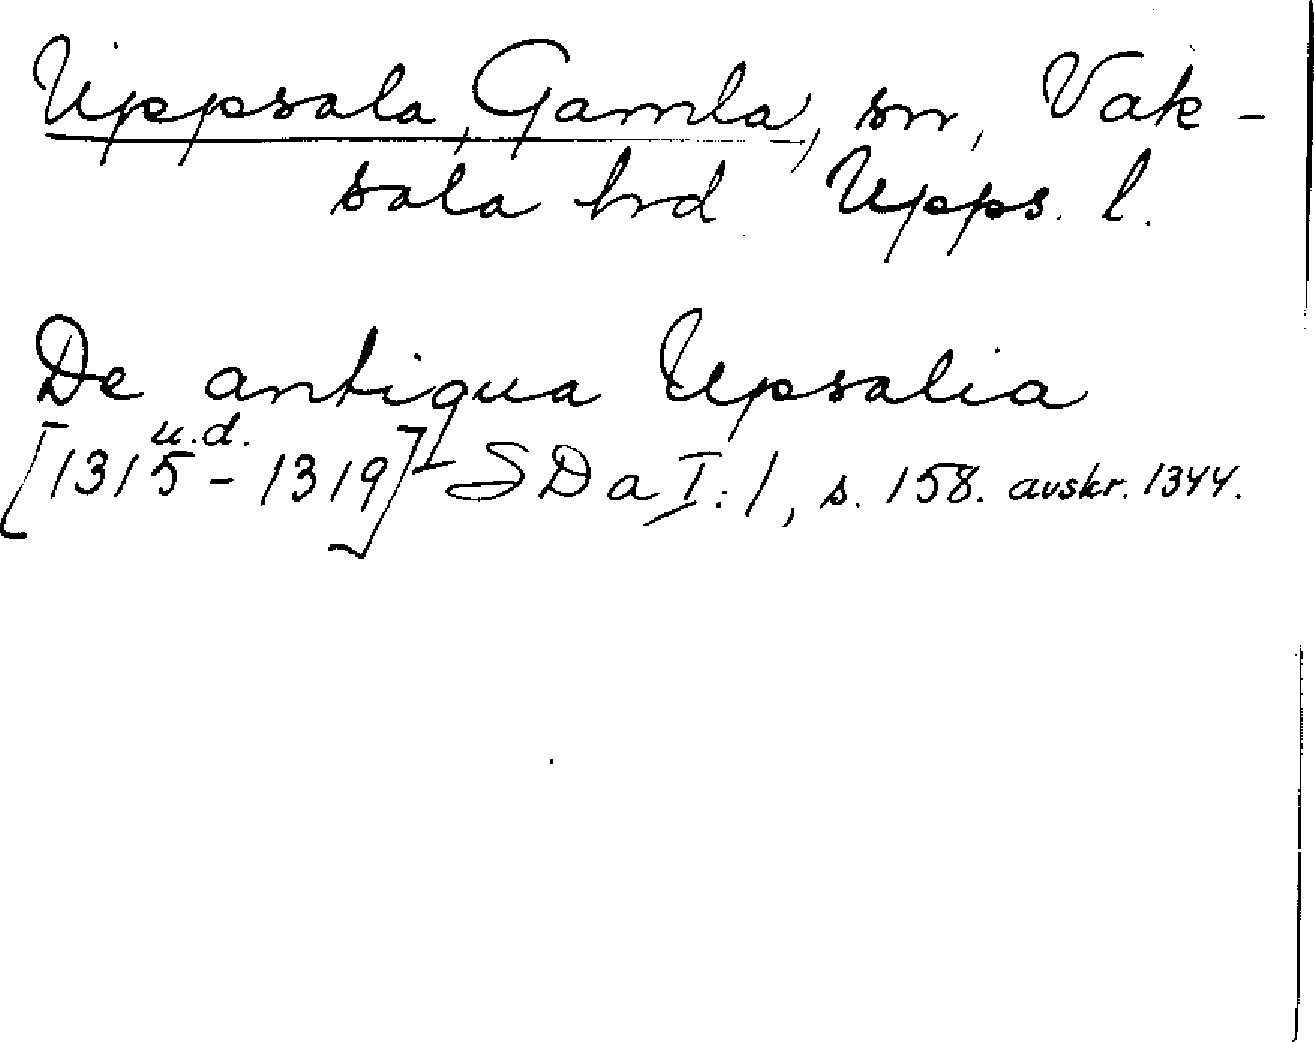 Uppsala, Gamla, sn, Vak-
sala hrd Upps. l.
De antiqua Upsalia
u.d.
[1315 - 1319] SDa I:1, s. 158. avskr. 1344.